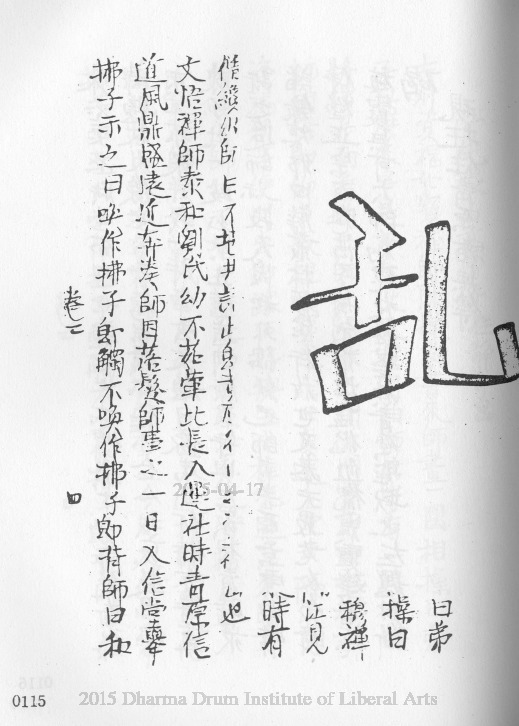 曰弟
操曰
穆禪
見
時有
乱
文悟禪師泰和劉氏幼不茹葷比長入蓮社時青原信
道風鼎盛遠近奔湊師因落髮師事之一日入信嘗舉
拂子示之曰喚作拂子即觸不喚作拂子即背師曰和
卷二
四
2015-04-17
0115
2015 Dharma Drum Institute of Liberal Arts